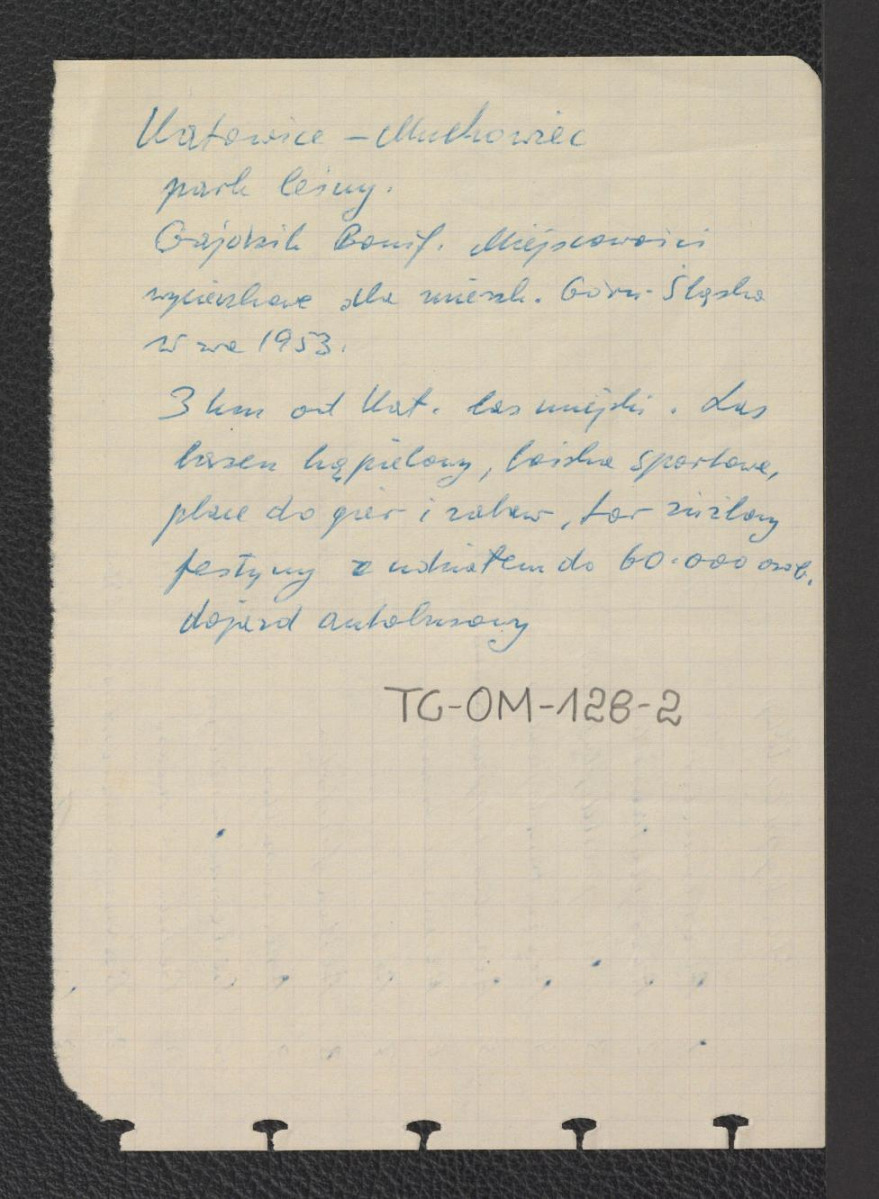 Katowice – Muchowiec
park leśny.
Gajdzik Bonif. Miejscowości
wycieczkowe dla mieszk. Górn. Śląska
W-wa 1953.
3 km od Kat. las miejski. Las
basen kąpielowy, boiska sportowe,
place do gier i zabaw, tor żużlowy
festyny z udziałem do 60.000 osób.
dojazd autobusowy
TG-OM-128-2